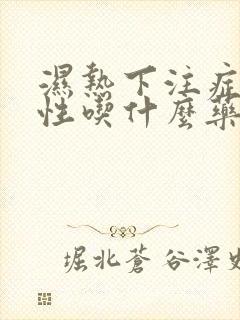 濕熱下注症
性喫什麼藥
堀北蒼谷澤